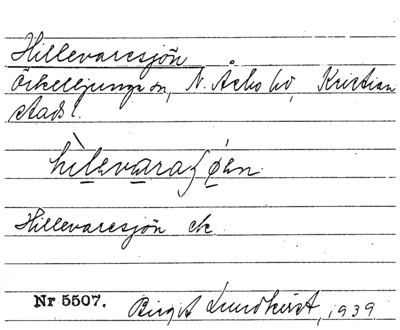 Hillevaresjön
Örkelljunga sn, N. Åsbo hd, Kristian
stads l.
hìlevaraʃøen
Hillevaresjön ek
Nr 5507. Birgit Lundkvist, 1939